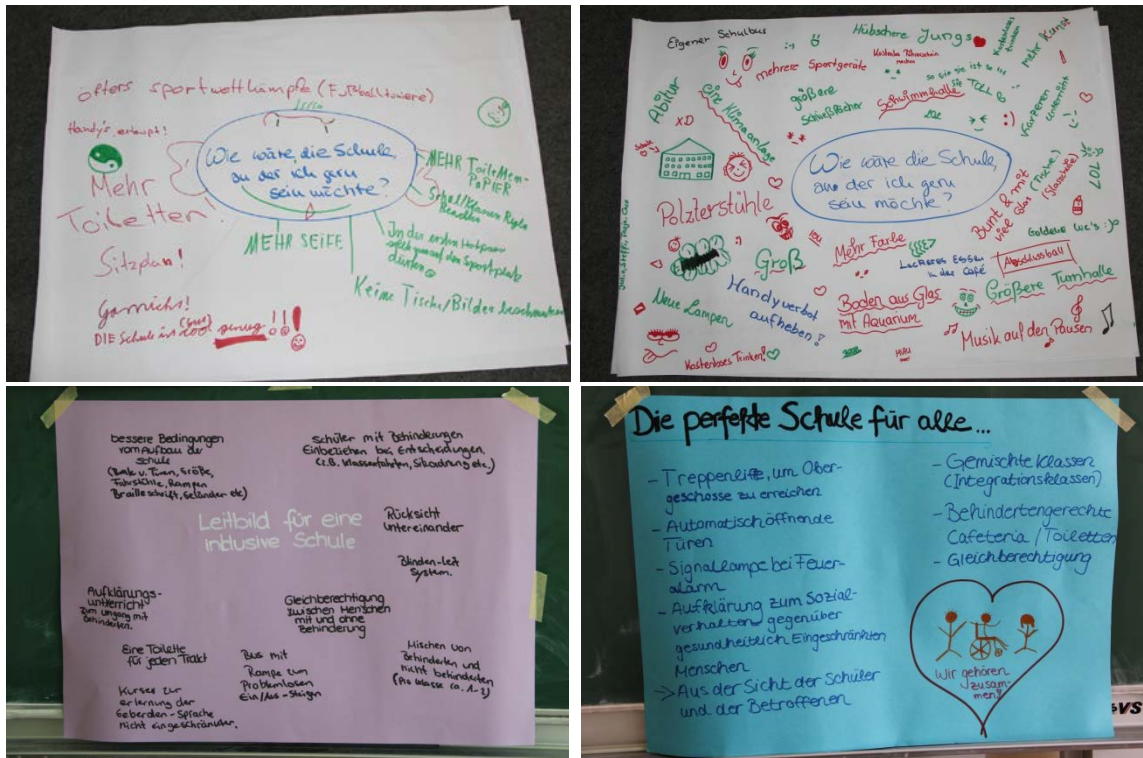 öfters sportwettkämpfe (Fußballtuniere)
Handy's, erlaupt!
Mehr
Toiletten!
Sitzplan!
Garnichts!
DIE Schule ist genug !!!
Wie wäre die Schule,
an der ich gern
sein möchte?
MEHR SEIFE
MEHR ToiletTen-
PaPIER
In der ersten Hofpause
auf den Sportplatz
dürfen
Keine Tische/Bilder beschmutzen
Eigener Schulbus
Hübschere Jungs
Kostenloses
trinken
mehr Kunst
mehrere Sportgeräte
so sie sie ist so !!!
TOLL
Abitur
eine Klimaanlage
größere
Schließfächer
Schwimmhalle
Kürzeren
unterricht
XD
LOL
Wie wäre die Schule,
an der ich gern
sein möchte?
Polzterstühle
Bunt & mit
viel Glas (Tische,
LOL
Goldene WC's :D
Mehr Farbe
Groß
LecKeres ESSEN
in das Café
Abschlussball
Größere Turnhalle
Neue Lampen
Handyverbot
aufheben!
Boden aus Glas
mit Aquarium
Musik auf den Pausen
Kostenloses Trinken!
bessere Bedingungen
vom Aufbau der
Schule
(Bänke u. Türen, Größe,
Fahrstühle, Rampen
Brailleschrift, Geländer etc)
Schüler mit Behinderungen
Einbeziehen bei Entscheidungen,
(z.B. Klassenfahrten, Sitzordnung etc.)
Leitbild für eine
inklusive Schule
Rücksicht
untereinander
Blinden-Leit
System.
Aufklärungs-
unterricht
zum umgang mit
Behinderten.
Gleichberechtigung
zwischen Menschen
mit und ohne
Behinderung
Eine Toilette
für jeden Trakt
Bus mit
Rampe zum
Problemlosen
Ein/Aus-Steigen
Mischen von
Behinderten und
nicht behinderten
(Pro Klasse ca. 1-2)
Kurse zur
erlernung der
Geberden-Sprache
nicht eingeschränkter.
Die perfekte Schule für alle...
- Treppenlifte, um Ober-
geschosse zu erreichen
- Automatisch öffnende
Türen
- Signallampe bei Feuer-
alarm
- Aufklärung zum Sozial-
verhalten gegenüber
gesundheitlich Eingeschränkten
Menschen
-> Aus der Sicht der Schüler
und der Betroffenen
- Gemischte Klassen
(Integrationsklassen)
- Behindertengerechte
Cafeteria / Toiletten
- Gleichberechtigung
Wir gehören
zusam-
men!
VS